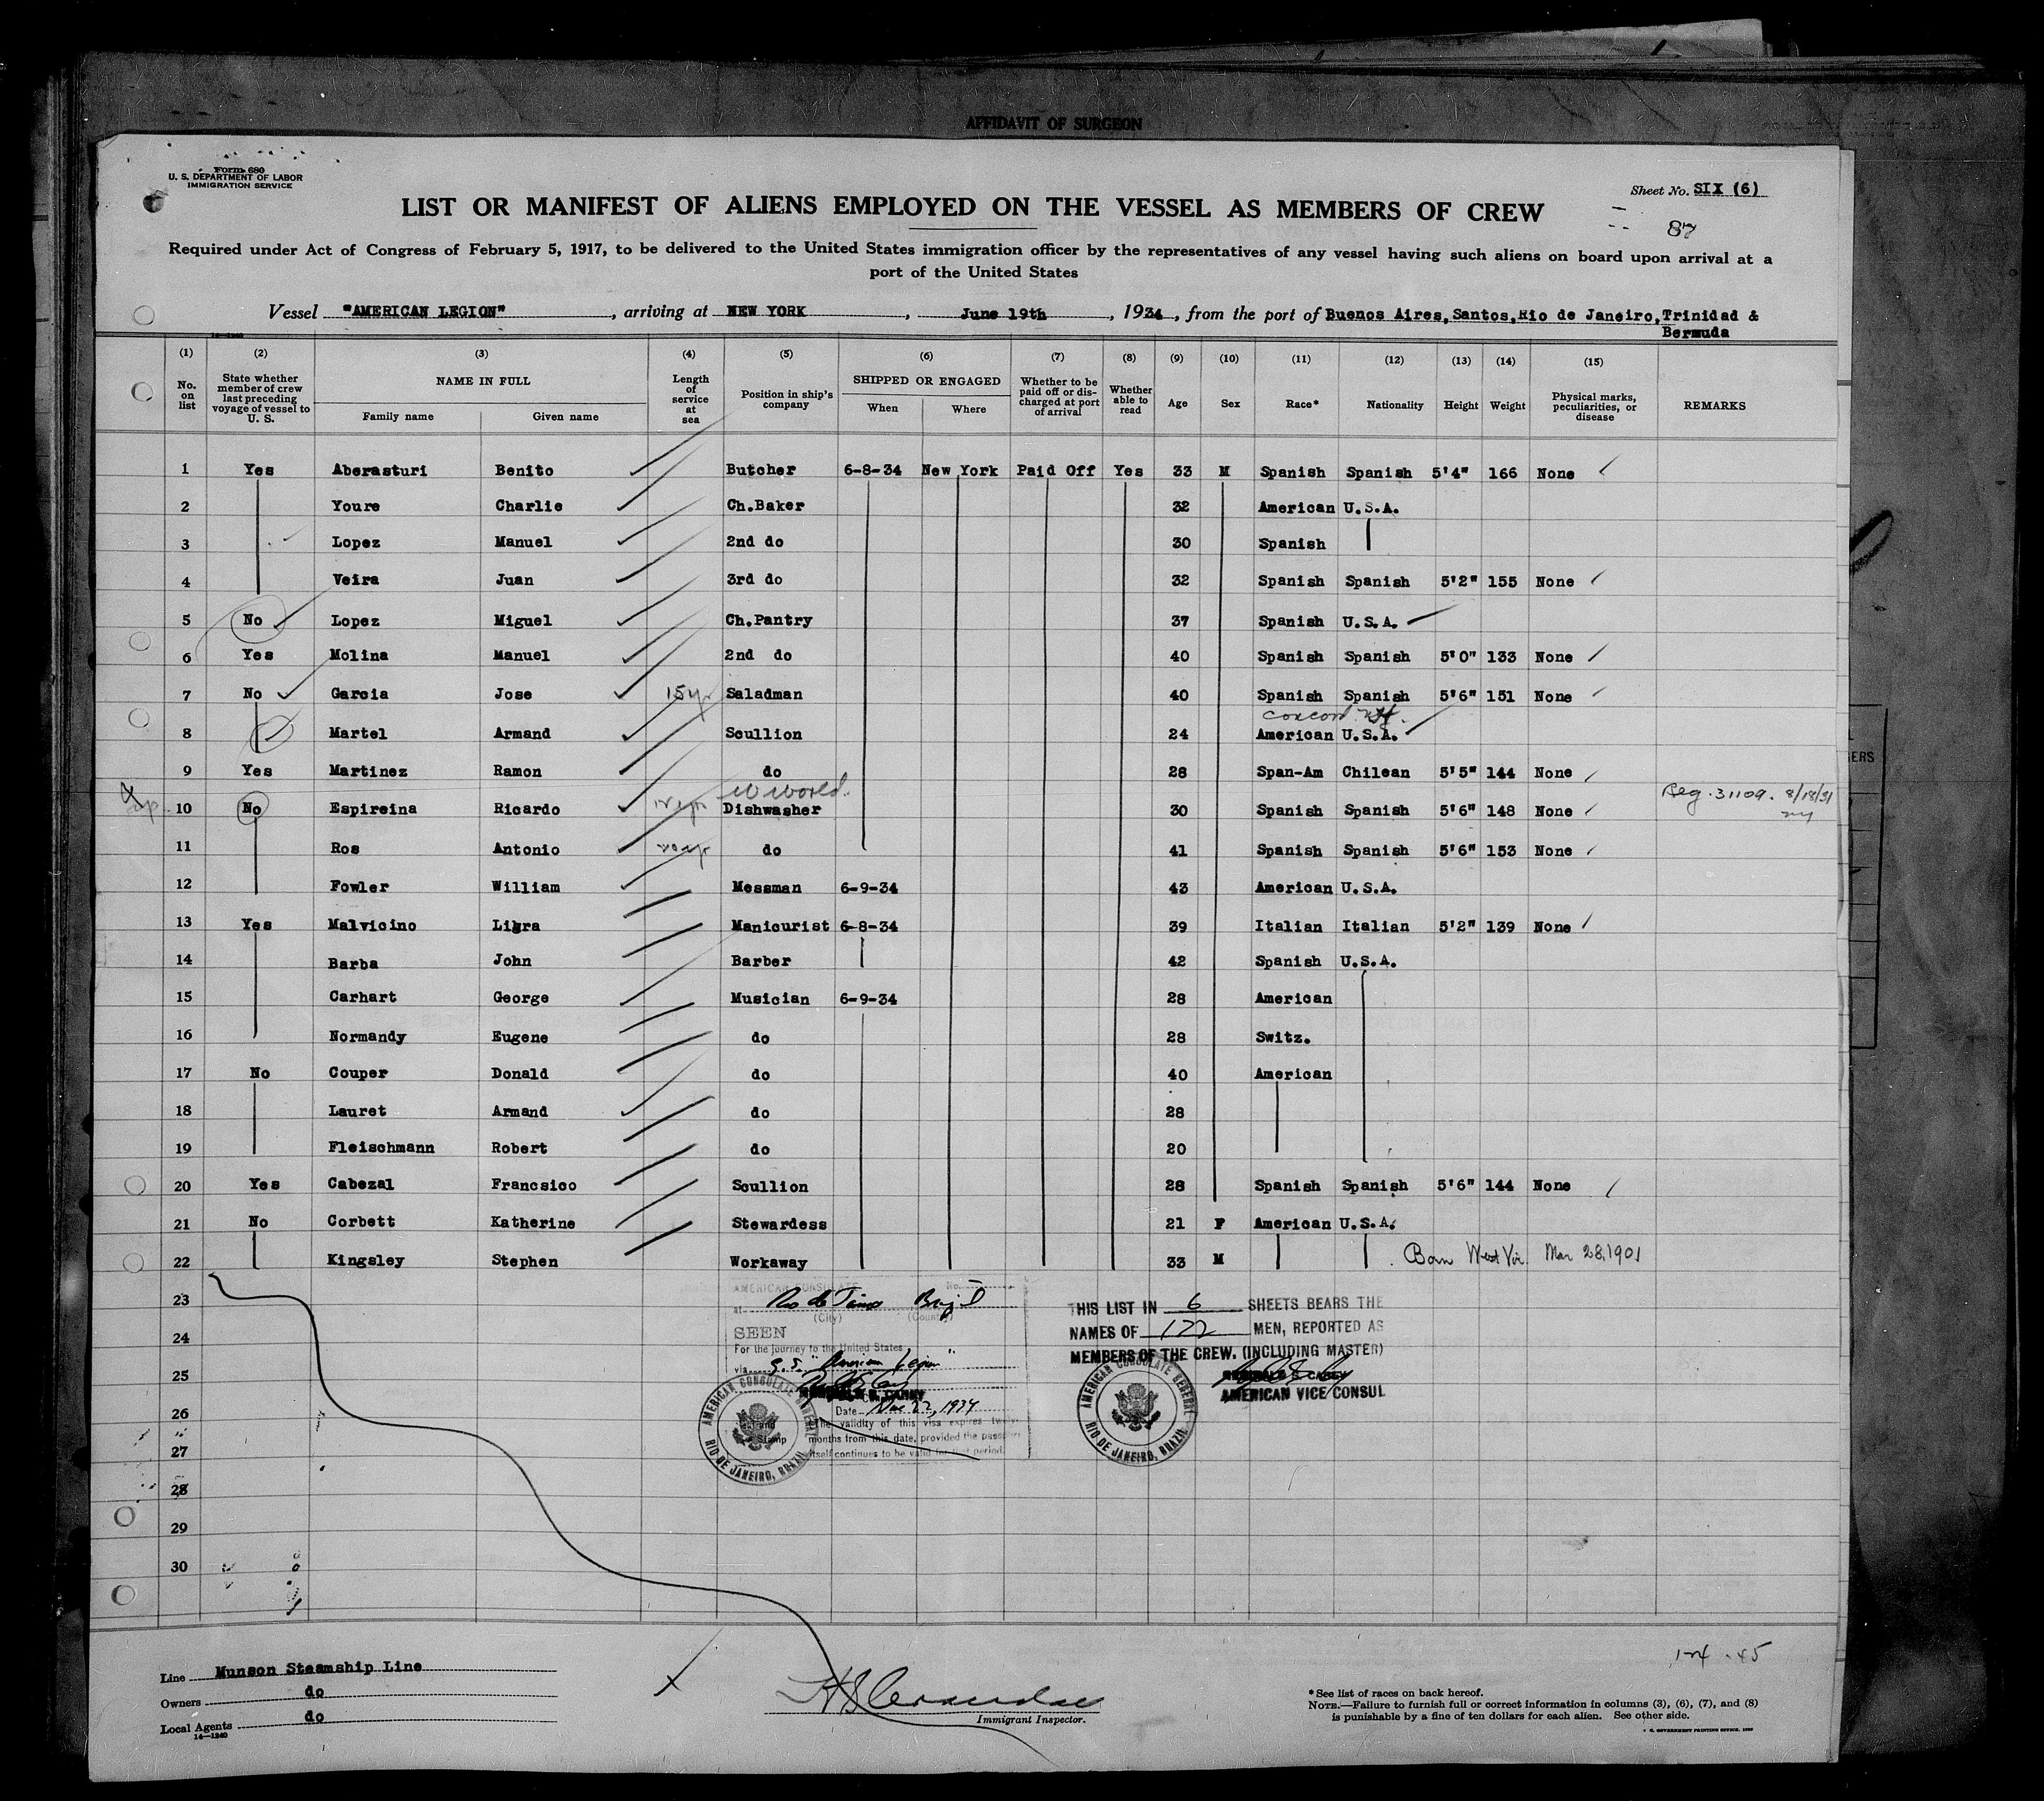 AFFIDAVIT OF SURGEON
Form 680
U. S. DEPARTMENT OF LABOR
IMMIGRATION SERVICE
Sheet No. SIX (6)
87
LIST OR MANIFEST OF ALIENS EMPLOYED ON THE VESSEL AS MEMBERS OF CREW
Required under Act of Congress of February 5, 1917, to be delivered to the United States immigration officer by the representatives of any vessel having such aliens on board upon arrival at a
port of the United States
Vessel "AMERICAN LEGION", arriving at NEW YORK, June 19th, 1934, from the port of Buenos Aires, Santos, Rio de Janeiro, Trinidad &
Bermuda
14—1240
(1) (2) (3) (4) (5) (6) (7) (8) (9) (10) (11) (12) (13) (14) (15)
No. on list
State whether member of crew last preceding voyage of vessel to U. S.
NAME IN FULL
Family name Given name
Length of service at sea
Position in ship's company
SHIPPED OR ENGAGED
When Where
Whether to be paid off or discharged at port of arrival
Whether able to read
Age Sex Race* Nationality Height Weight
Physical marks, peculiarities, or disease
REMARKS
1 Yes Aberasturi Benito Butcher 6-8-34 New York Paid Off Yes 33 M Spanish Spanish 5'4" 166 None
2 Youre Charlie Ch.Baker 32 American U.S.A.
3 Lopez Manuel 2nd do 30 Spanish
4 Veira Juan 3rd do 32 Spanish Spanish 5'2" 155 None
5 No Lopez Miguel Ch.Pantry 37 Spanish U.S.A.
6 Yes Molina Manuel 2nd do 40 Spanish Spanish 5'0" 133 None
7 No Garcia Jose 15yr Saladman 40 Spanish Spanish 5'6" 151 None
Concord NH.
8 Martel Armand Scullion 24 American U.S.A.
9 Yes Martinez Ramon do 28 Span-Am Chilean 5'5" 144 None
W World.
10 No Espireina Ricardo Dishwasher 30 Spanish Spanish 5'6" 148 None Reg. 31109. 8/18/31
NY
11 Ros Antonio do 41 Spanish Spanish 5'6" 153 None
12 Fowler William Messman 6-9-34 43 American U.S.A.
13 Yes Malvicino Ligra Manicurist 6-8-34 39 Italian Italian 5'2" 139 None
14 Barba John Barber 42 Spanish U.S.A.
15 Carhart George Musician 6-9-34 28 American
16 Normandy Eugene do 28 Switz.
17 No Couper Donald do 40 American
18 Lauret Armand do 28
19 Fleischmann Robert do 20
20 Yes Cabezal Francsico Scullion 28 Spanish Spanish 5'6" 144 None
21 No Corbett Katherine Stewardess 21 F American U.S.A.
22 Kingsley Stephen Workaway 33 M Born West Vir. Mar 28, 1901
23
24
25
26
27
28
29
30
AMERICAN CONSULATE No.
at Rio de Janeiro Brazil
(City) (Country)
SEEN
For the journey to the United States
via S.S. "American Legion"
Date 22, 1934
The validity of this visa expires twelve
months from this date, provided the passport
itself continues to be valid for that period.
AMERICAN CONSULATE GENERAL
RIO DE JANEIRO, BRAZIL
THIS LIST IN 6 SHEETS BEARS THE
NAMES OF 122 MEN, REPORTED AS
MEMBERS OF THE CREW. (INCLUDING MASTER)
AMERICAN VICE CONSUL
AMERICAN CONSULATE GENERAL
RIO DE JANEIRO, BRAZIL
Line Munson Steamship Line
Owners do
Local Agents do
14—1240
Immigrant Inspector.
* See list of races on back hereof.
NOTE.—Failure to furnish full or correct information in columns (3), (6), (7), and (8)
is punishable by a fine of ten dollars for each alien. See other side.